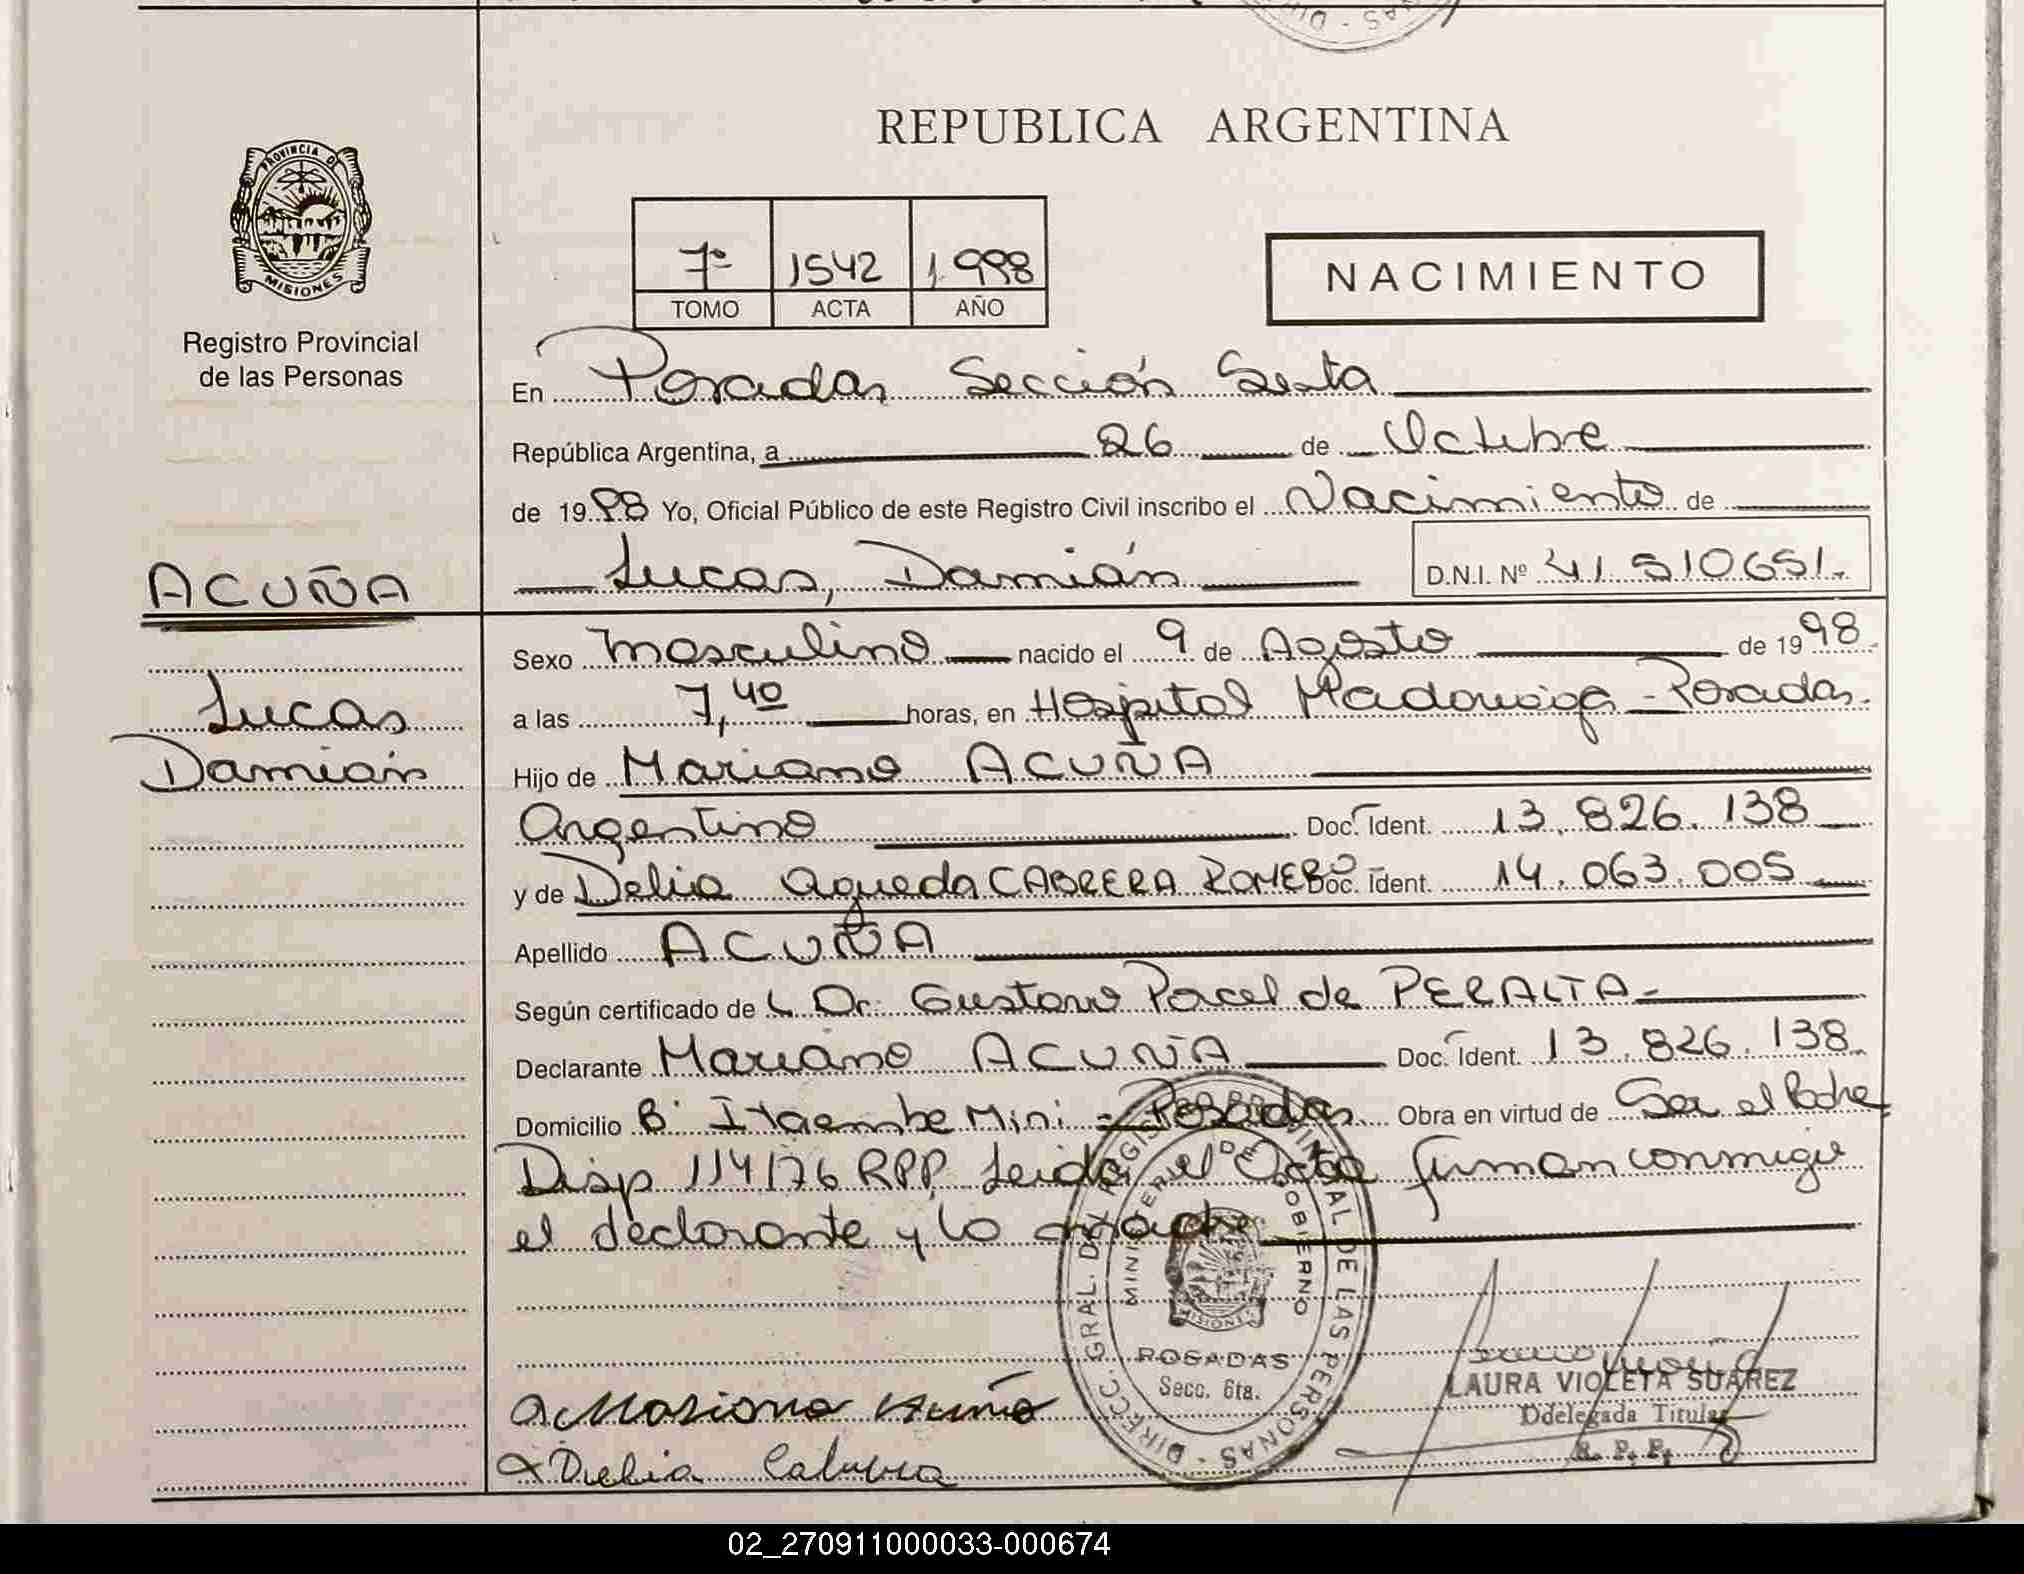 REPUBLICA ARGENTINA
PROVINCIA DE
MISIONES
Registro Provincial
de las Personas
7º 1542 1.998
TOMO ACTA AÑO
NACIMIENTO
En Posadas Sección Sexta
República Argentina, a 26 de Octubre
de 1998 Yo, Oficial Público de este Registro Civil inscribo el Nacimiento de
Lucas, Damián D.N.I. Nº 41.510651.
ACUÑA
Lucas
Damián
Sexo Masculino nacido el 9 de Agosto de 1998
a las 7,40 horas, en Hospital Madariaga - Posadas.
Hijo de Mariano ACUÑA
Argentino Doc. Ident. 13.826.138
y de Delia Agueda CABRERA ROMERO Doc. Ident. 14.063.005
Apellido ACUÑA
Según certificado de Dr. Gustavo de PERALTA-
Declarante Mariano ACUÑA Doc. Ident. 13.826.138
Domicilio Bº Itaembe Mini - Posadas Obra en virtud de Ser el Padre
Disp 114/76 RPP. Leida el Acta firman conmigo
el declarante y la madre
DIRECC. GRAL. DEL REGISTRO PROVINCIAL DE LAS PERSONAS
MINISTERIO DE GOBIERNO
MISIONES
POSADAS
Secc. 6ta.
LAURA VIOLETA SUAREZ
Ddelegada Titular
R. P. P.
Mariano Acuña
Delia Cabrera
02_270911000033-000674